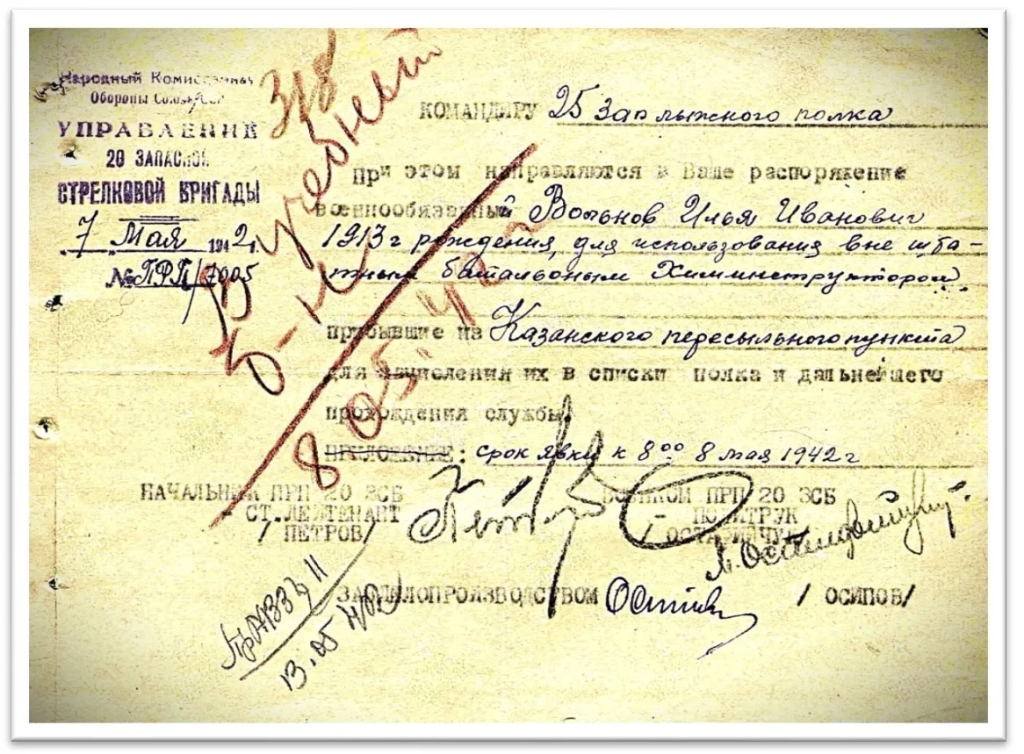 Народный Комиссариат
Обороны Союза ССР
УПРАВЛЕНИЕ
20 ЗАПАСНОЙ
СТРЕЛКОВОЙ БРИГАДЫ
7 Мая 1942г.
№ПРП/7005
318
В учебный
б-н
8 05 42г
КОМАНДИРУ 25 зап лыжного полка
При этом направляются в Ваше распоряжение
военнообязанный Вольнов Илья Иванович
1913г рождения, для использования вне шта-
тным батальоным Химинструктором.
прибывшие из Казанского пересыльного пункта
для зачисления их в списки полка и дальнейшего
прохождения службы.
ПРИЛОЖЕНИЕ: срок явки к 8⁰⁰ 8 мая 1942г
НАЧАЛЬНИК ПРП 20 ЗСБ
СТ.ЛЕЙТЕНАНТ
/ ПЕТРОВ/
ВОЕНКОМ ПРП 20 ЗСБ
- ПОЛИТРУК
ЗАВДЕЛОПРОИЗВОДСТВОМ / ОСИПОВ/
13.05